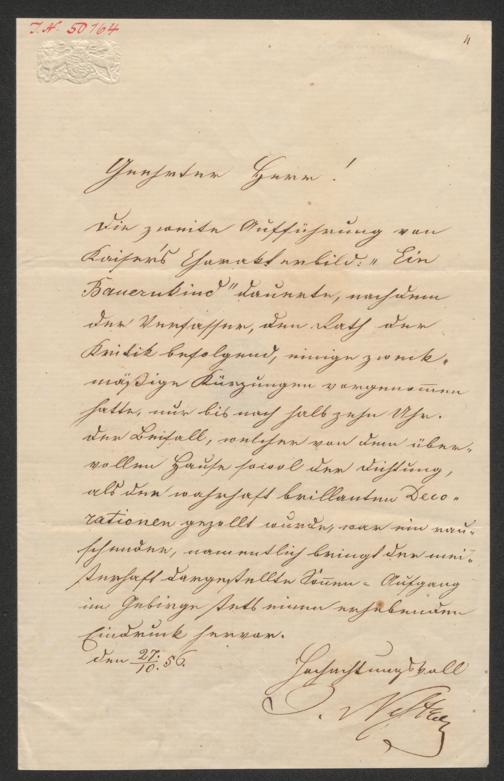 I.N. 50764
4
Geehrter Herr!
Die zweite Aufführung von
Kaiser's Charakterbild: „Ein
Bauernkind" dauerte, nachdem
der Verfasser, den Rath der
Kritik befolgend, einige zweck-
mäßige Kürzungen vorgenom̅en
hatte, nur bis nach halb zehn Uhr.
Der Beifall, welcher von dem über-
vollen Hause sowol der Dichtung,
als der wahrhaft brillanten Deco-
rationen gezollt wurde, war ein rau-
schender, namentlich bringt der mei-
sterhaft dargestellte Son̅en-Aufgang
im Gebirge stets einen erhebenden
Eindruck hervor.
den 27./10. 56.
Hochachtungsvoll
J. Nestroy